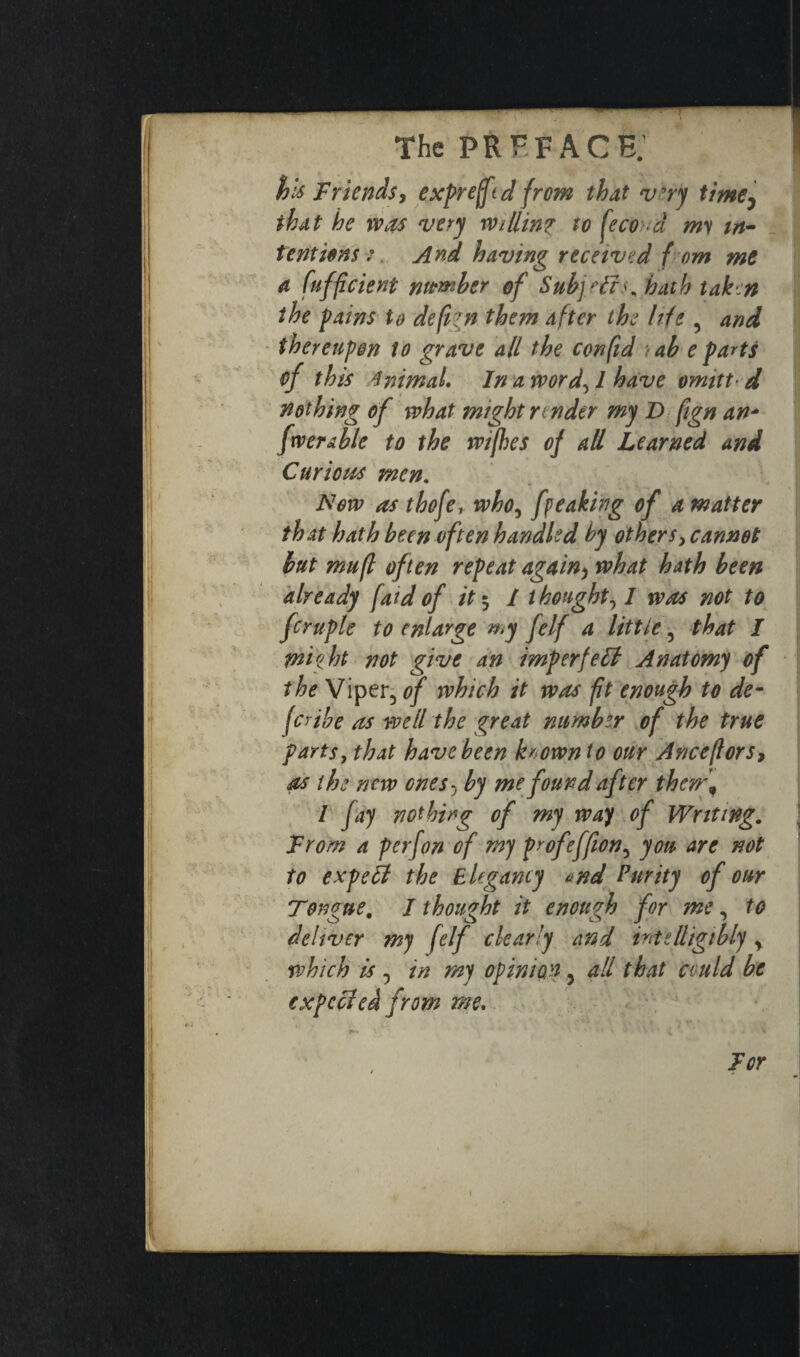 The PREFACE.
his Friends, expreſſed from that very time,
that he was very willing to ſecond my in-
tentions: And having received from me
a ſufficient number of Subjects, hath taken
the pains to deſign them after the life, and
thereupon to grave all the conſiderable parts
of this Animal. In a word, I have omitted
nothing of what might render my Deſign an-
ſwerable to the wiſhes of all Learned and
Curious men.
Now as thoſe, who, ſpeaking of a matter
that hath been often handled by others, cannot
but muſt often repeat again, what hath been
already ſaid of it; I thought, I was not to
ſcruple to enlarge my ſelf a little, that I
might not give an imperfect Anatomy of
the Viper, of which it was fit enough to de-
ſcribe as well the great number of the true
parts, that have been known to our Anceſtors,
as the new ones, by me found after them.
I ſay nothing of my way of Writing.
From a perſon of my profeſſion, you are not
to expect the Elegancy and Purity of our
Tongue. I thought it enough for me, to
deliver my ſelf clearly and intelligibly,
which is, in my opinion, all that could be
expected from me.
For